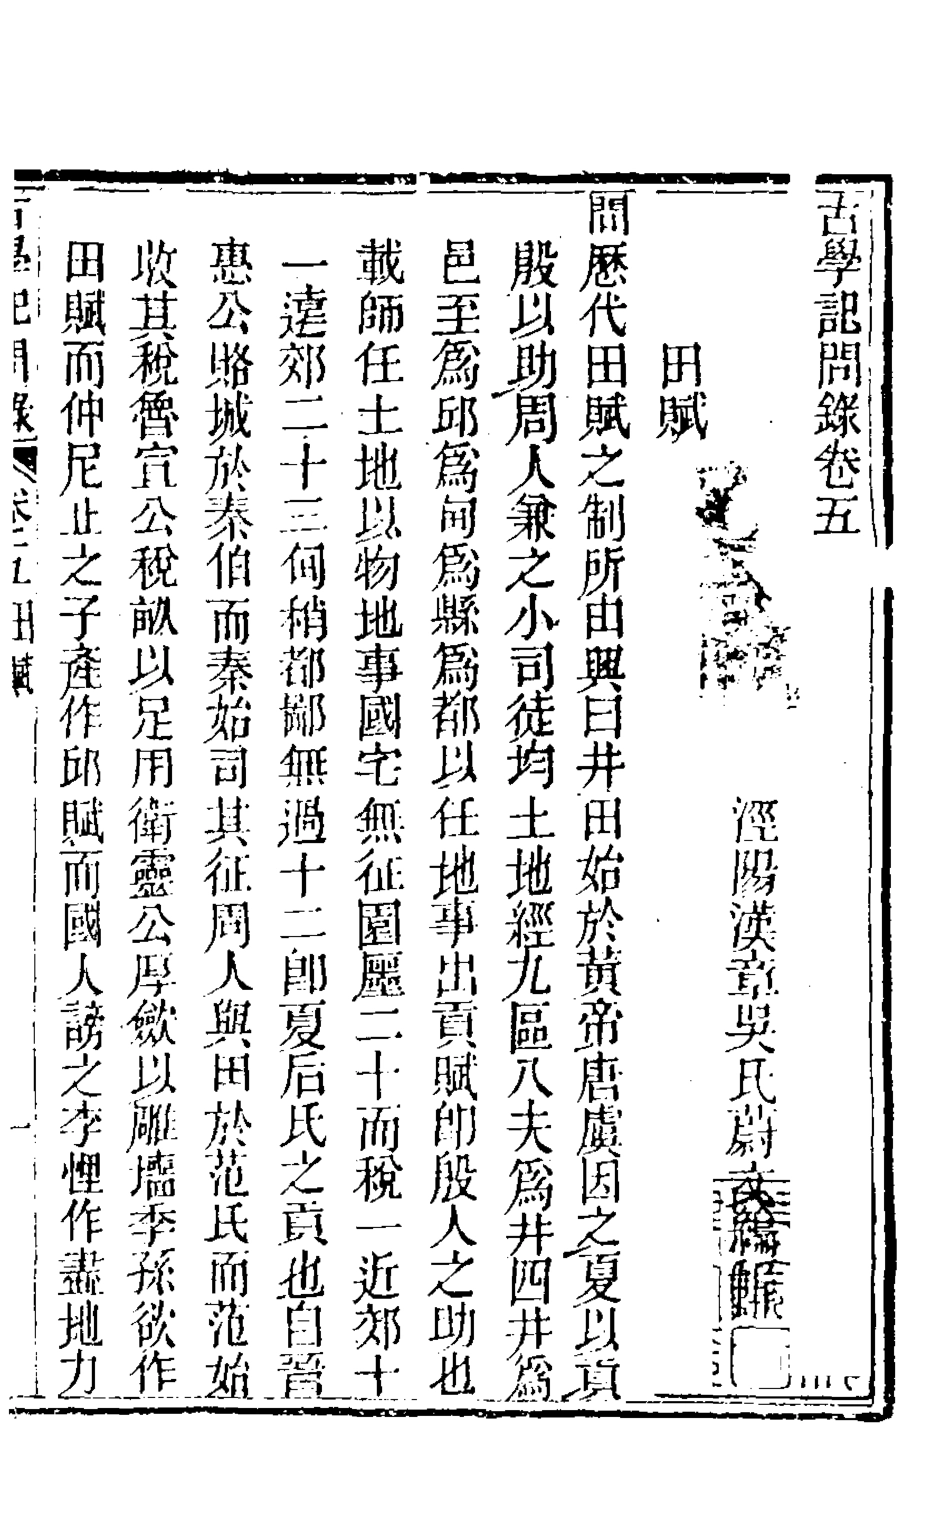 古學記問錄卷五
涇陽漢章吳氏蔚文編輯
田賦
問歷代田賦之制所由興曰井田始於黃帝唐虞因之夏以貢
殷以助周人兼之小司徒均土地經九區八夫爲井四井爲
邑至爲邱爲甸爲縣爲都以任地事出貢賦卽殷人之助也
載師任土地以物地事國宅無征園廛二十而稅一近郊十
一遠郊二十三甸稍都鄙無過十二卽夏后氏之貢也自晉
惠公賂城於秦伯而秦始司其征周人與田於范氏而范始
收其稅魯宣公稅畝以足用衛靈公厚歛以雕墻季孫欲作
田賦而仲尼止之子產作邱賦而國人謗之李悝作盡地力
古學記問錄 卷五 田賦 一